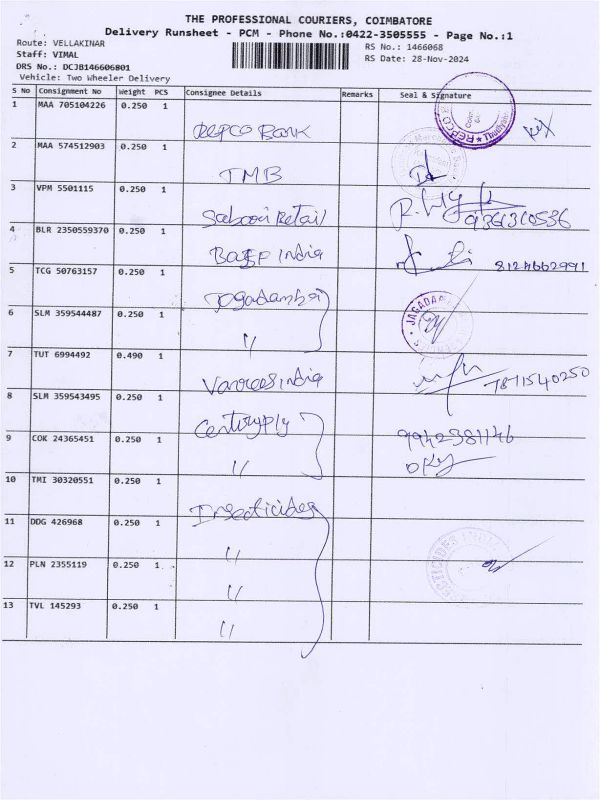 THE PROFESSIONAL COURIERS, COIMBATORE
Delivery Runsheet - PCM - Phone No.:0422-3505555 - Page No.:1
Route: VELLAKINAR
RS No.: 1466068
Staff: VIMAL
RS Date: 28-Nov-2024
DRS No.: DCJB146606801
Vehicle: Two Wheeler Delivery
S No Consignment No Weight PCS Consignee Details Remarks Seal & Signature
1 MAA 705104226 0.250 1 Repco Bank
REPCO
2 MAA 574512903 0.250 1 TMB
3 VPM 5501115 0.250 1 Sabari Retail 9361310536
4 BLR 2350559370 0.250 1 India 8124662991
5 TCG 50763157 0.250 1 Jagadamba
JAGADA
6 SLM 359544487 0.250 1 "
7 TUT 6994492 0.490 1 India 7871540250
8 SLM 359543495 0.250 1 Centuryply
9942381146
9 COK 24365451 0.250 1 "
10 TMI 30320551 0.250 1 Insecticides
11 DDG 426968 0.250 1 "
12 PLN 2355119 0.250 1 "
13 TVL 145293 0.250 1 "